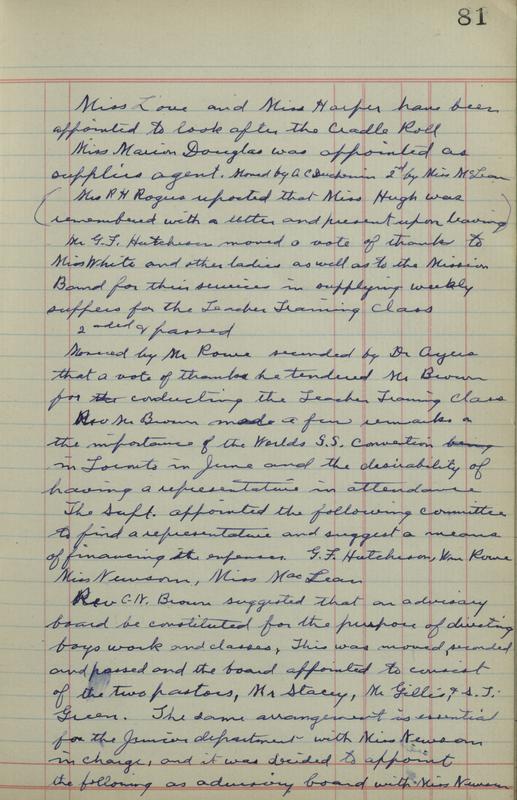 81
Miss Love and Miss Harper have been
appointed to look after the Cradle Roll
Miss Marion Douglas was appointed as
supplies agent. Moved by A C 2nd by Miss McLean
(Mrs R H Rogers reported that Miss Hugh was
remembered with a letter and present upon leaving)
Mr G.F. Hutcheson moved a vote of thanks to
Miss White and other ladies as well as to the Mission
Band for their services in supplying weekly
suppers for the Teacher Training Class
2nded & passed
Moved by Mr Rowe seconded by Dr Ayers
that a vote of thanks be tendered Mr Brown
for the conducting the Teacher Training Class
Rev Mr Brown made a few remarks on
the importance of the Worlds S.S. Convention being
in Toronto in June and the desirability of
having a representative in attendance
The Supt. appointed the following committee
to find a representative and suggest a means
of financing the expenses. G.F. Hutcheson, Wm Rowe
Miss Newsom, Miss MacLean
Rev C.N. Brown suggested that an advisory
board be constituted for the purpose of directing
boys work and classes, This was moved seconded
and passed and the board appointed to consist
of the two pastors, Mr Stacey, Mr Gillis, & S.T.
Green. The same arrangement is essential
for the Junior department with Miss Newsom
in charge, and it was decided to appoint
the following as advisory board with Miss Newsom